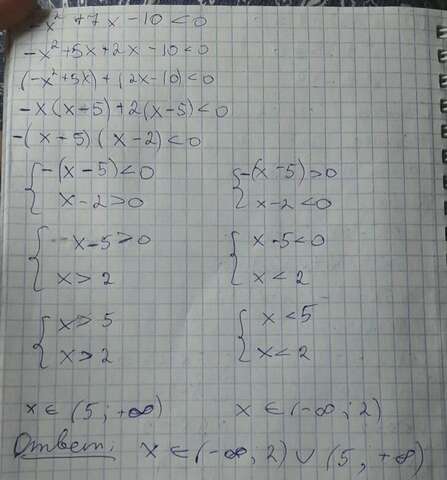 -x² + 7x - 10 < 0
-x² + 5x + 2x - 10 < 0
(-x² + 5x) + (2x - 10) < 0
-x(x - 5) + 2(x - 5) < 0
-(x - 5)(x - 2) < 0
{ -(x - 5) < 0 { -(x - 5) > 0
x - 2 > 0 x - 2 < 0
{ x - 5 > 0 { x - 5 < 0
x > 2 x < 2
{ x > 5 { x < 5
x > 2 x < 2
x ∈ (5; +∞) x ∈ (-∞; 2)
Ответ: x ∈ (-∞; 2) ∪ (5; +∞)